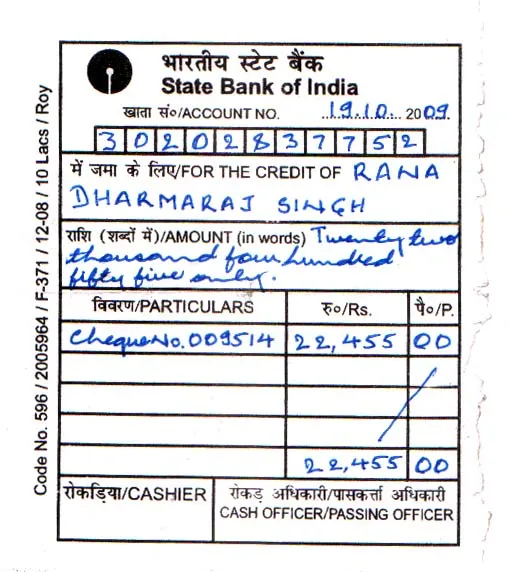 भारतीय स्टेट बैंक
State Bank of India
खाता सं०/ACCOUNT NO. 19.10. 2009.
30202837752
में जमा के लिए/FOR THE CREDIT OF RANA
DHARMARAJ SINGH
राशि (शब्दों में)/AMOUNT (in words) Twenty two
thousand four hundred
fifty five only.
विवरण/PARTICULARS रु०/Rs. पै०/P.
Cheque No. 009514 22,455 00
22,455 00
रोकड़िया/CASHIER रोकड़ अधिकारी/पासकर्त्ता अधिकारी
CASH OFFICER/PASSING OFFICER
Code No. 596 / 2005964 / F-371 / 12-08 / 10 Lacs / Roy